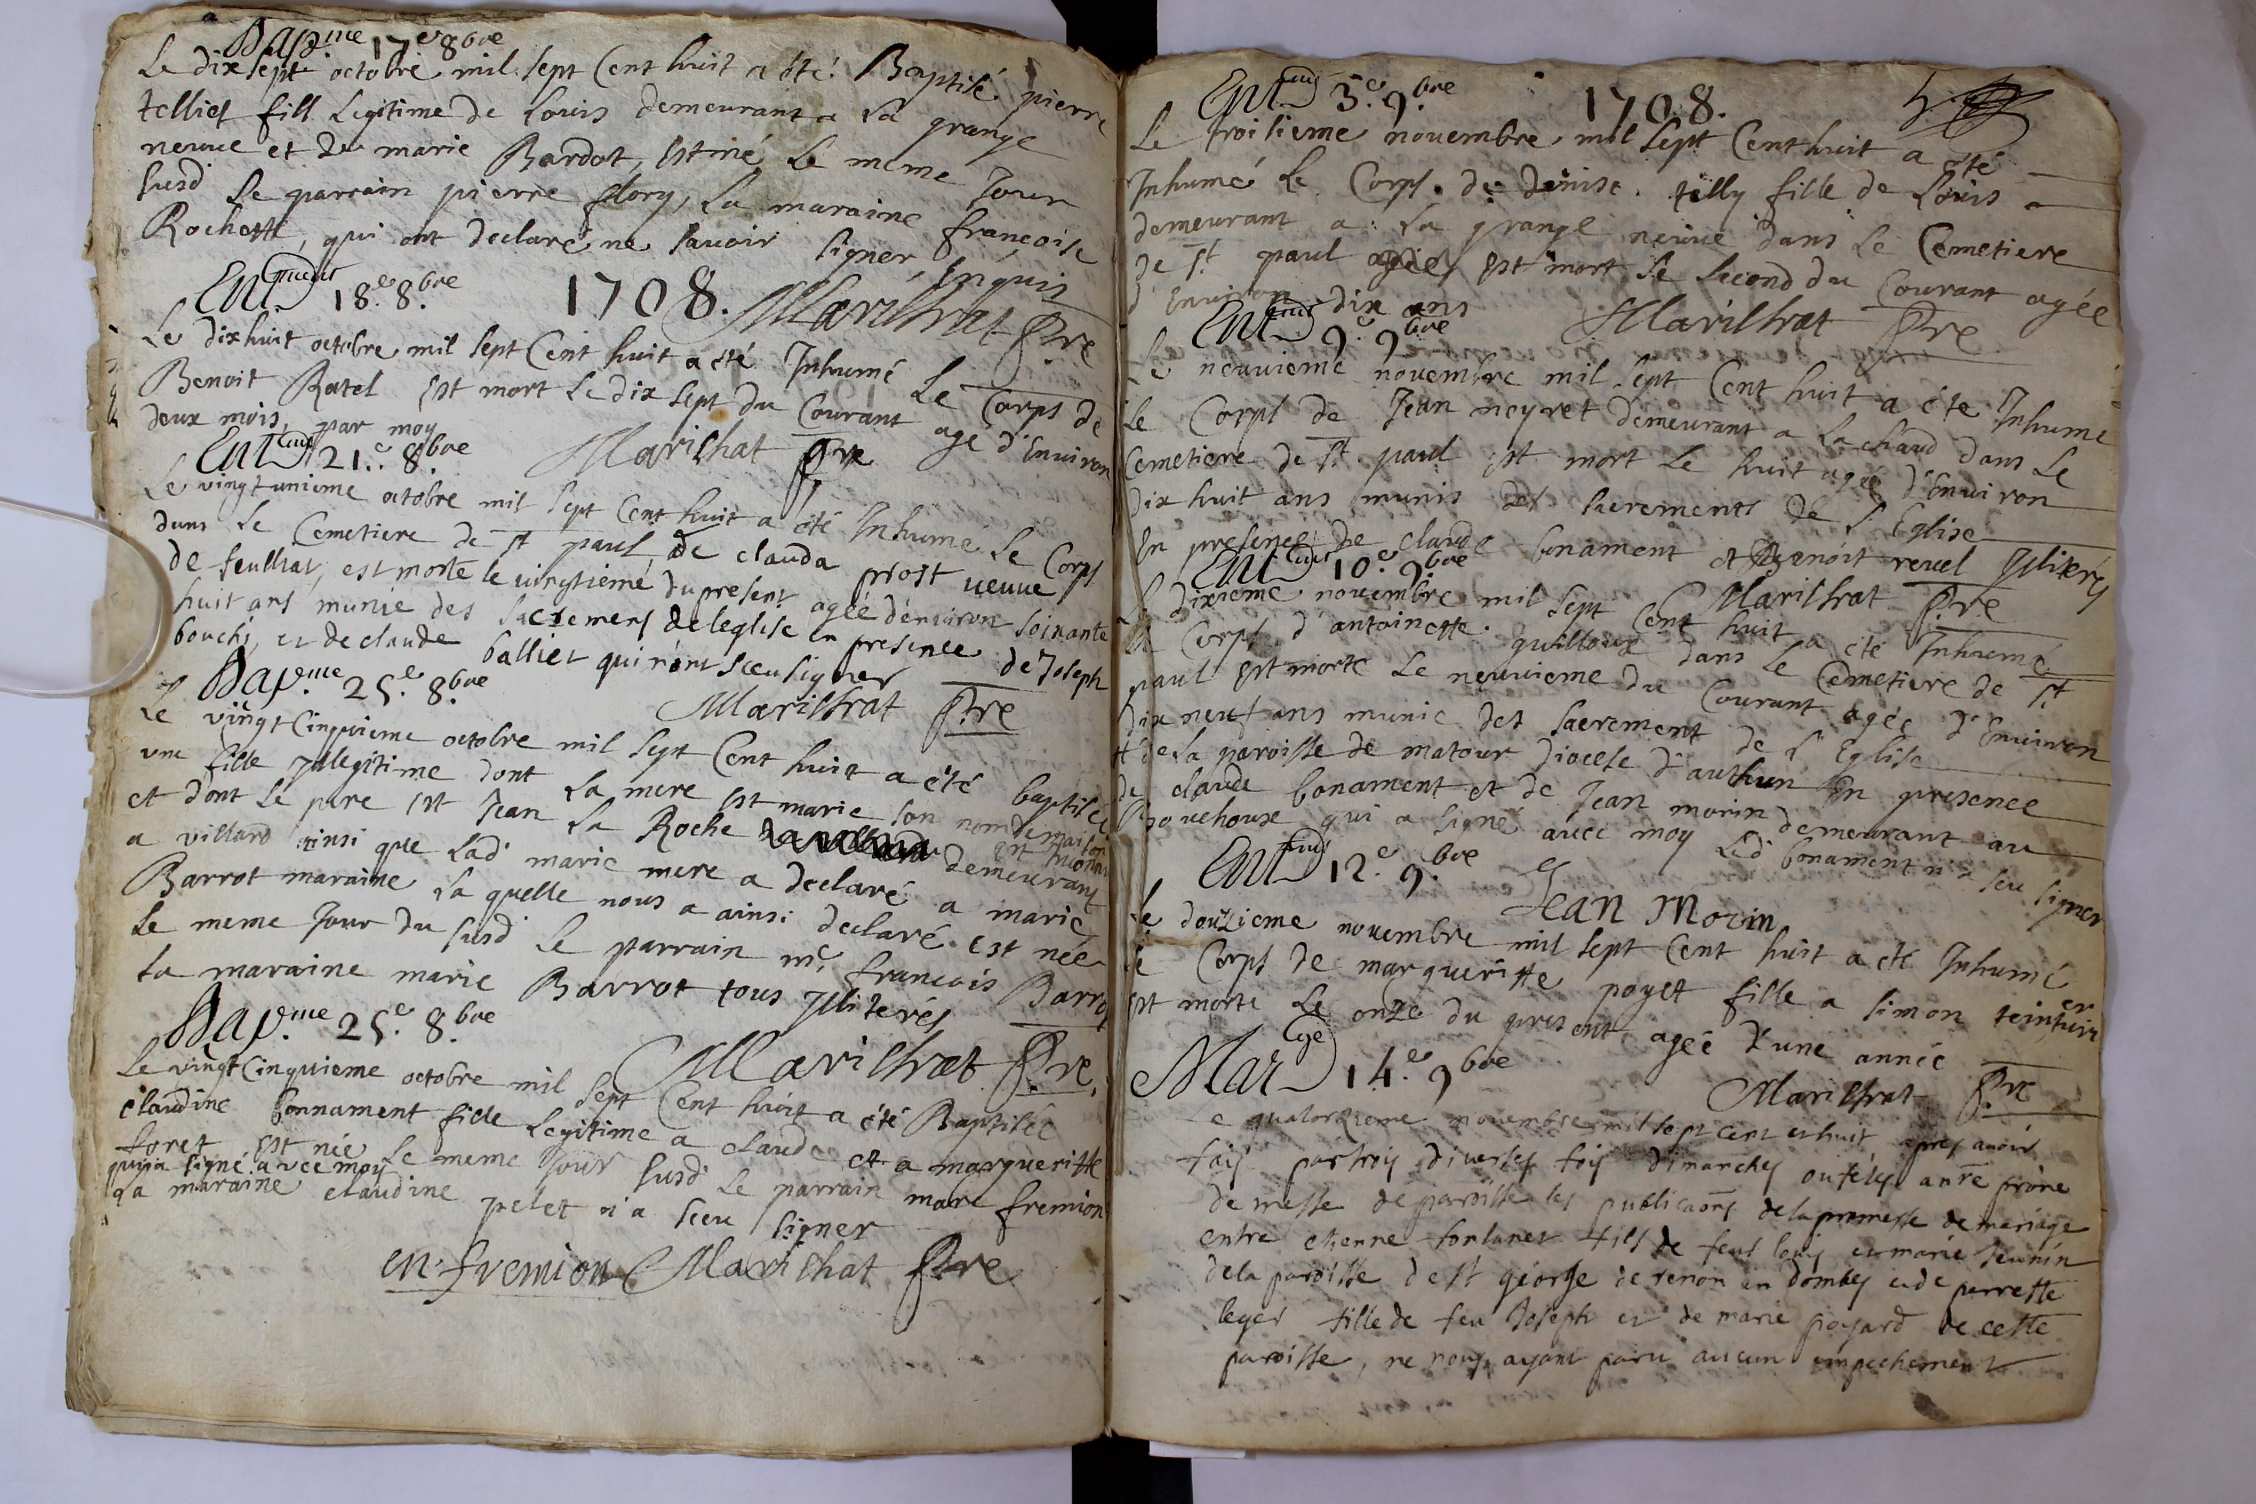 Bap.me 17e 8bre
Le dix sept octobre mil sept Cent huit a été Baptisé pierre
tellier fill Legitime de Louis demeurant a La grange
neuve et de marie Bardot, Est né Le meme Jour
susd Le parrain pierre flory, La maraine françoise
Rochette, qui ont declaré ne savoir signer, Enquis
Marilhat Ptre
Ent 18.e 8.bre 1708.
Le dixhuit octobre mil sept Cent huit a été Inhumé Le Corps de
Benoit Ratel Est mort Le dix sept du Courant agé d'Environ
deux mois, par moy
Marilhat Ptre
Ent 21.e 8.bre
Le vingt unieme octobre mil sept Cent huit a été Inhumé Le Corps
dans Le Cemetiere de St paul de clauda prost veuve
de feu , est morte le vingtieme du present agée d'environ soixante
huit ans munie des sacremens de leglise en presence de Joseph
bouchi, et de claude balliet qui n'ont sceu signer
Marilhat Ptre
Bap.me 25.e 8.bre
Le vingt Cinquieme octobre mil sept Cent huit a été baptisée
une fille yllegitime dont La mere Est marie son nom de maison
et dont Le pere Est Jean La Roche demeurant
a villard ainsi que Lad. marie mere a declaré a marie
Barrot maraine La quelle nous a ainsi declaré. Est née
Le meme Jour du susd Le parrain m.e francois Barrot
La maraine marie Barrot tous ylliterés
Marilhat Ptre.
Bap.me 25.e 8.bre
Le vingt Cinquieme octobre mil sept Cent huit a été Baptisée
claudine bonnament fille Legitime a claude et a margueritte
foret Est née Le meme Jour susd. Le parrain marc fremion
qui a signé avec moy
La maraine claudine pelet n'a sceu signer
m. fremion Marilhat Ptre
Ent 3.e 9.bre 1708. 5
Le troisieme novembre mil sept Cent huit a été
Inhumé Le Corps de denise tilly fille de Louis
demeurant a La grange neuve dans Le Cemetiere
de St. paul Est mort Le second du Courant agée
d'Environ dix ans
Marilhat Ptre
Ent 9.e 9.bre
Le neuvieme novembre mil sept Cent huit a été Inhumé
Le Corps de Jean neyret demeurant a La chaud dans Le
Cemetiere de St. paul Est mort Le huit agé d'Environ
dix huit ans munis des sacrements de L'Eglise
En presence de claude bonament et Benoit revel ylliterés
Marilhat Ptre
Ent 10.e 9.bre
Le dixieme novembre mil sept Cent huit a été Inhumé
Le Corps d'antoinette guilloux dans Le Cemetiere de St
paul Est morte Le neuvieme du Courant agée d'Environ
dix neuf ans munie des sacrement de L'Eglise
de La paroisse de matour Diocese d'authun En presence
de claude bonament et de Jean morin demeurant au
qui a signé avec moy Led. bonament n'a seu signer
Jean Morin
Ent 12.e 9.bre
Le douzieme novembre mil sept Cent huit a été Inhumé
Le Corps de margueritte poyet fille a simon teinturier
Est morte Le onze du present agée d'une année
Marilhat Ptre
Mar 14.e 9bre
Le quatorzieme novembre mil sept cent et huit apres avoir
fais par trois diverses fois dimanches ou fetes au prône
de messe de paroisse les publicaons de la promesse de mariage
entre etienne fontanet fils de feus louis et marie Jeunin
de la paroisse de st george de renon en dombes et de perrette
leger fille de feu Joseph et de marie poyard de cette
paroisse, ne nous ayant paru aucun empechement